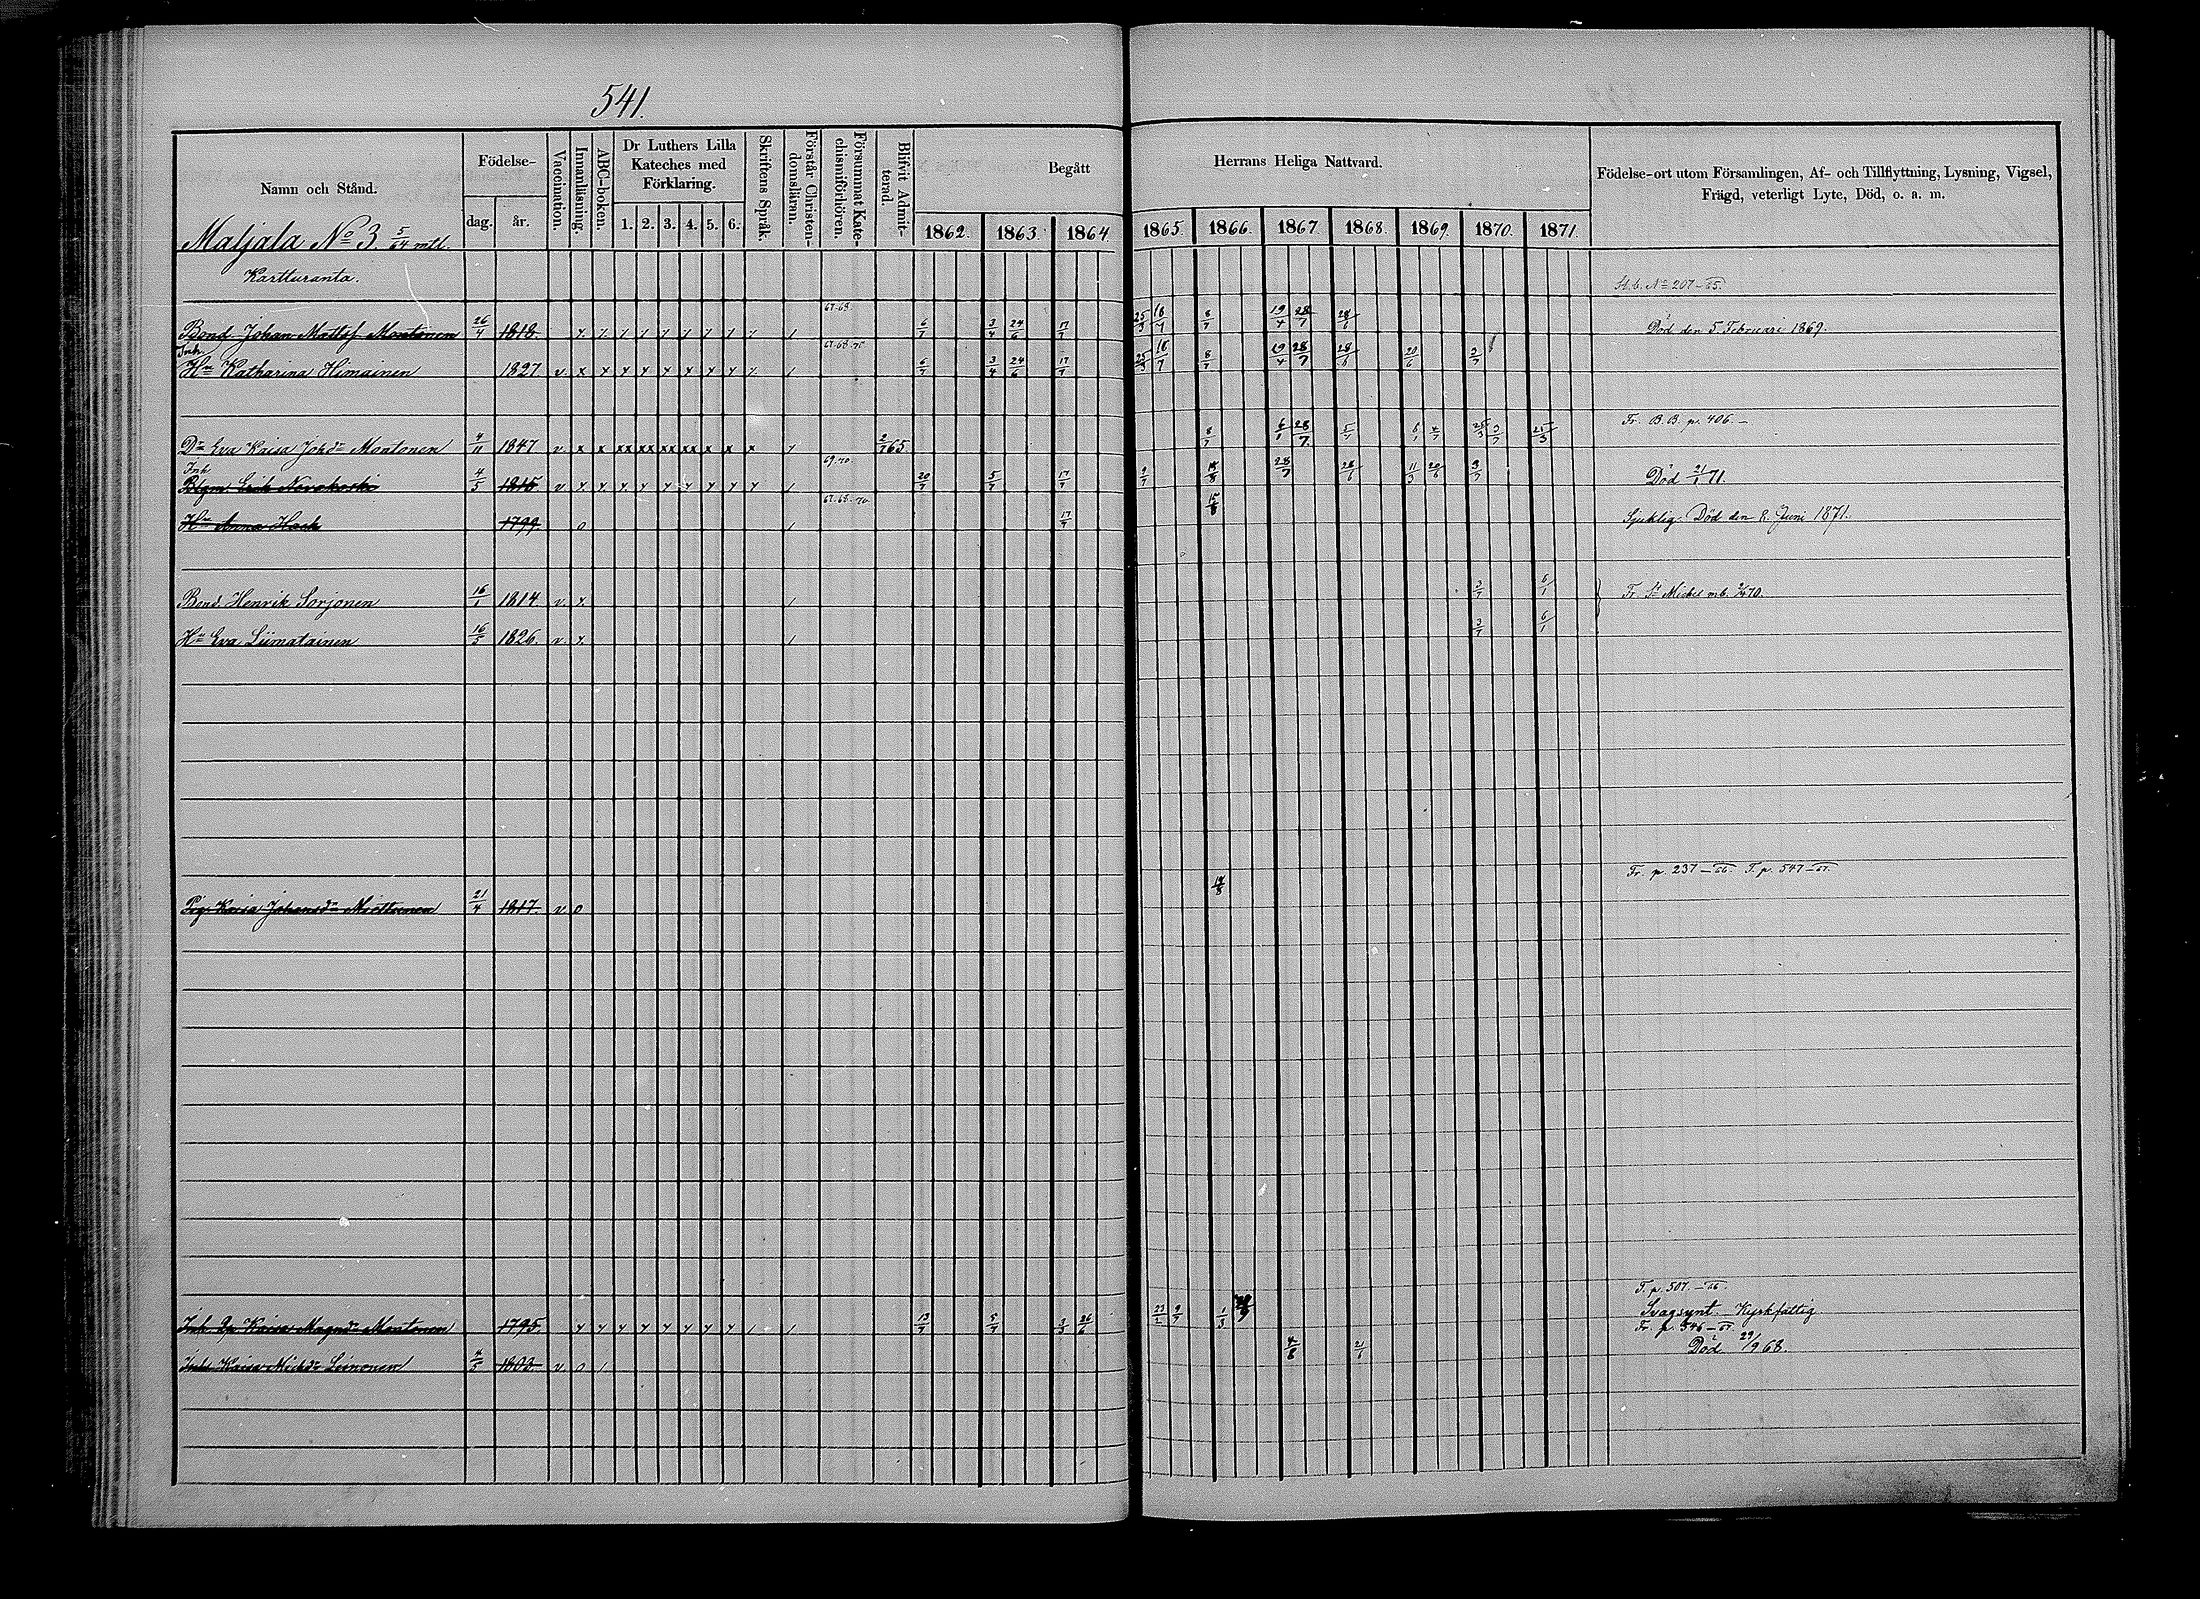 541.
Namn och Stånd. Födelse- dag. år. Vaccination. Innanläsning. ABC-boken. Dr Luthers Lilla Kateches med Förklaring. 1. 2. 3. 4. 5. 6. Skriftens Språk. Förstår Christendomsläran. Försummat Katechismiförhören. Blifvit Admitterad. Begått Herrans Heliga Nattvard. 1862. 1863. 1864. 1865. 1866. 1867. 1868. 1869. 1870. 1871. Födelse-ort utom Församlingen, Af- och Tillflyttning, Lysning, Vigsel, Frägd, veterligt Lyte, Död, o. a. m.
Maljala No 3 5/64 mtl.
Kartturanta.
Bond. Johan Mattsf. Montonen 26/7 1818. 67-68. 6/7 3/4 24/6 17/7 25/3 16/7 8/7 19/4 28/7 28/6 Död den 5 Februari 1869.
Inh. Hu Katharina Himainen 1827 v. x 67-68-70 6/7 3/4 24/6 17/7 25/3 16/7 8/7 19/4 28/7 28/6 20/6 3/7
Fr. B.B. p. 406.
Dr Eva Kaisa Johdr Montonen 4/11 1847 v x xx xx xx xx x x x 2/7 65 8/7 6/1 28/7 25/3
Inh Erik 4/5 1815 v 69.70 20/7 5/7 17/7 9/7 28/7 28/6 11/3 20/6 3/7 Död 21/1 71.
Hu Anna Hack 1799 0 67-68-70 17/7 15/8 Sjuklig. Död den 8. Juni 1871.
Bond. Henrik Sorjonen 16/1 1814 v. x. 3/7 6/1 Fr. St Michel mb.
Hu Eva Liimatainen 16/5 1826. v. x. 3/7 6/1
Fr. p. 237-66. T. p. 547
Kaisa Johansdr Miettunen 21/4 1817. v 0
T. p. 507.-66.
Inh. Kaisa Magndr Montonen 1795. 13/7 5/7 26/6 9/7 1/3 Svagsynt. Kyrkfattig
Fr. p. 546
Kaisa Michdr Leinonen 4/5 1803 v 0 21/6 Död 29/2 68.